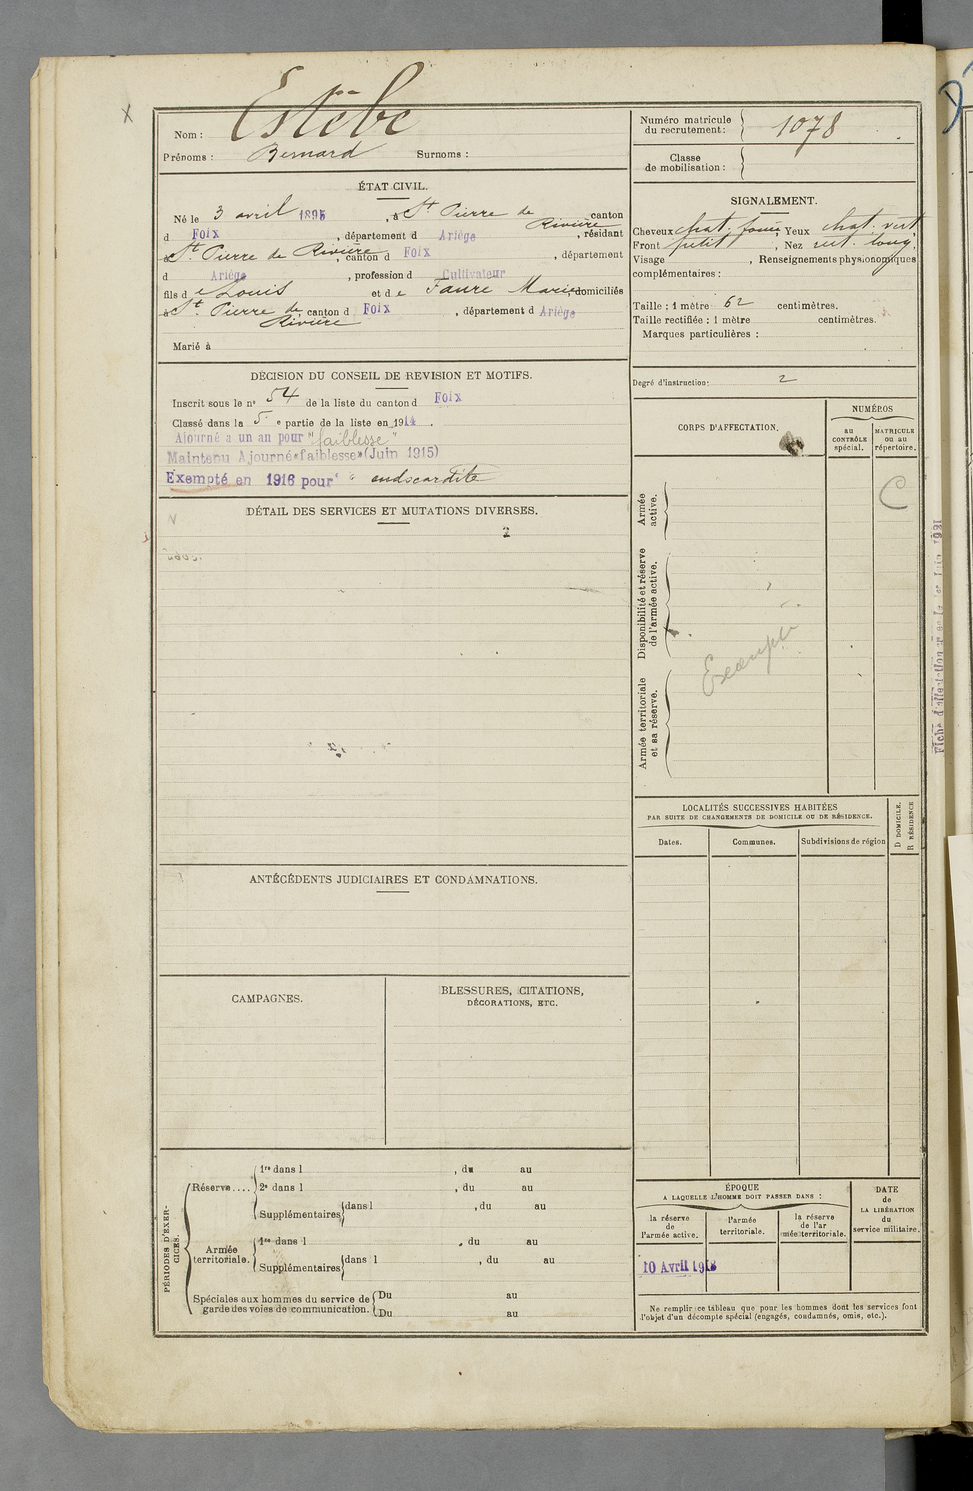 Nom : Estèbe
Prénoms : Bernard Surnoms :
Numéro matricule du recrutement : 1078
Classe de mobilisation :
ÉTAT CIVIL.
Né le 3 avril 1895, à St Pierre de Rivière canton
d Foix, département d Ariège, résidant
à St. Pierre de Rivière, canton d Foix, département
d Ariège, profession d Cultivateur
fils de Louis et de Faure Marie, domiciliés
à St. Pierre de Rivière canton d Foix, département d Ariège
Marié à
SIGNALEMENT.
Cheveux chat. foncé, Yeux chat. vert,
Front petit, Nez rect. long,
Visage , Renseignements physionomiques
complémentaires :
Taille : 1 mètre 62 centimètres.
Taille rectifiée : 1 mètre centimètres.
Marques particulières :
Degré d'instruction : 2
DÉCISION DU CONSEIL DE REVISION ET MOTIFS.
Inscrit sous le n° 54 de la liste du canton d Foix
Classé dans la 5 e partie de la liste en 1914.
Ajourné a un an pour "faiblesse"
Maintenu Ajourné «faiblesse» (Juin 1915)
Exempté en 1916 pour " endocardite
CORPS D'AFFECTATION.
NUMÉROS
au CONTRÔLE spécial.
MATRICULE ou au répertoire.
Armée active.
C
Disponibilité et réserve de l'armée active.
Exempté
Armée territoriale et sa réserve.
Fiche
Juin 1921
DÉTAIL DES SERVICES ET MUTATIONS DIVERSES.
2
LOCALITÉS SUCCESSIVES HABITÉES
PAR SUITE DE CHANGEMENTS DE DOMICILE OU DE RÉSIDENCE.
Dates.
Communes.
Subdivisions de région
D DOMICILE.
R RÉSIDENCE
ANTÉCÉDENTS JUDICIAIRES ET CONDAMNATIONS.
CAMPAGNES.
BLESSURES, CITATIONS,
DÉCORATIONS, ETC.
PÉRIODES D'EXERCICES.
Réserve....
1re dans l , du au
2e dans l , du au
Supplémentaires dans l , du au
Armée territoriale.
1re dans l , du au
Supplémentaires dans l , du au
Spéciales aux hommes du service de garde des voies de communication.
Du au
Du au
ÉPOQUE
A LAQUELLE L'HOMME DOIT PASSER DANS :
la réserve de l'armée active.
l'armée territoriale.
la réserve de l'armée territoriale.
DATE de LA LIBÉRATION du service militaire.
10 Avril 1918
Ne remplir ce tableau que pour les hommes dont les services font
l'objet d'un décompte spécial (engagés, condamnés, omis, etc.).